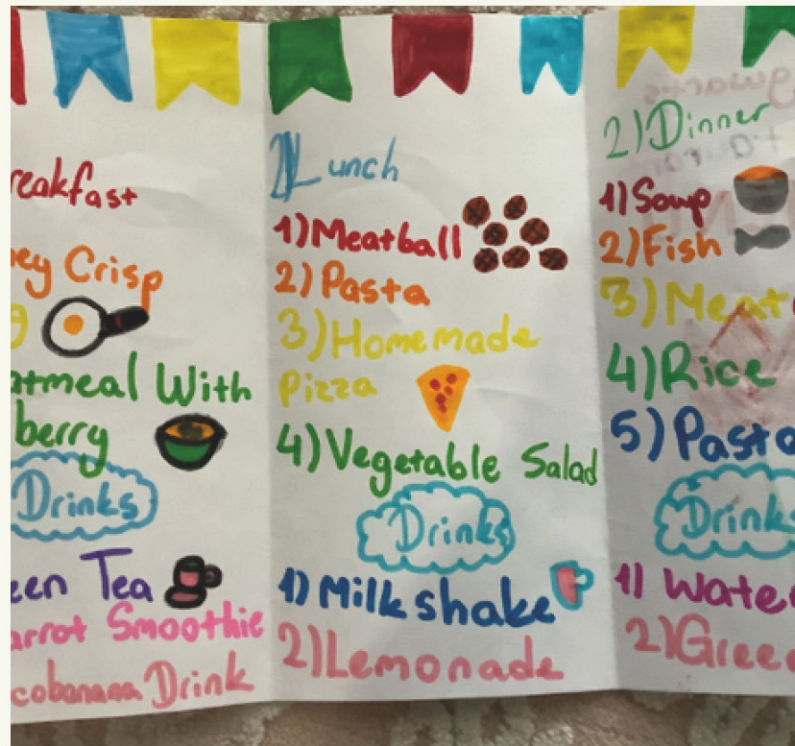 reakfast
ey Crisp
g
atmeal With
berry
Drinks
een Tea
arrot Smoothie
cobanana Drink
Lunch
1) Meatball
2) Pasta
3) Homemade
Pizza
4) Vegetable Salad
Drinks
1) Milkshake
2) Lemonade
2) Dinner
1) Soup
2) Fish
3) Meat
4) Rice
5) Pasta
Drinks
1) Water
2) Gree